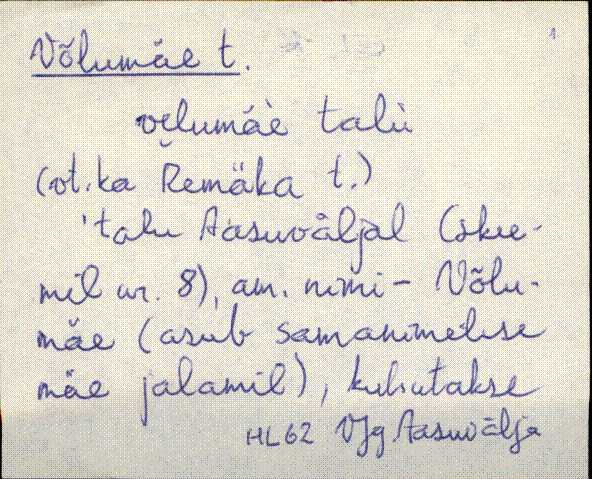 Võlumäe t. 1
velumäè talù
(vt. ka Remäka t.)
'talu Aasuväljal (skee-
mil nr. 8), am. nimi - Võlu-
mäe (asub samanimelise
mäe jalamil), kutsutakse
HL62 VJg Aasuvälja